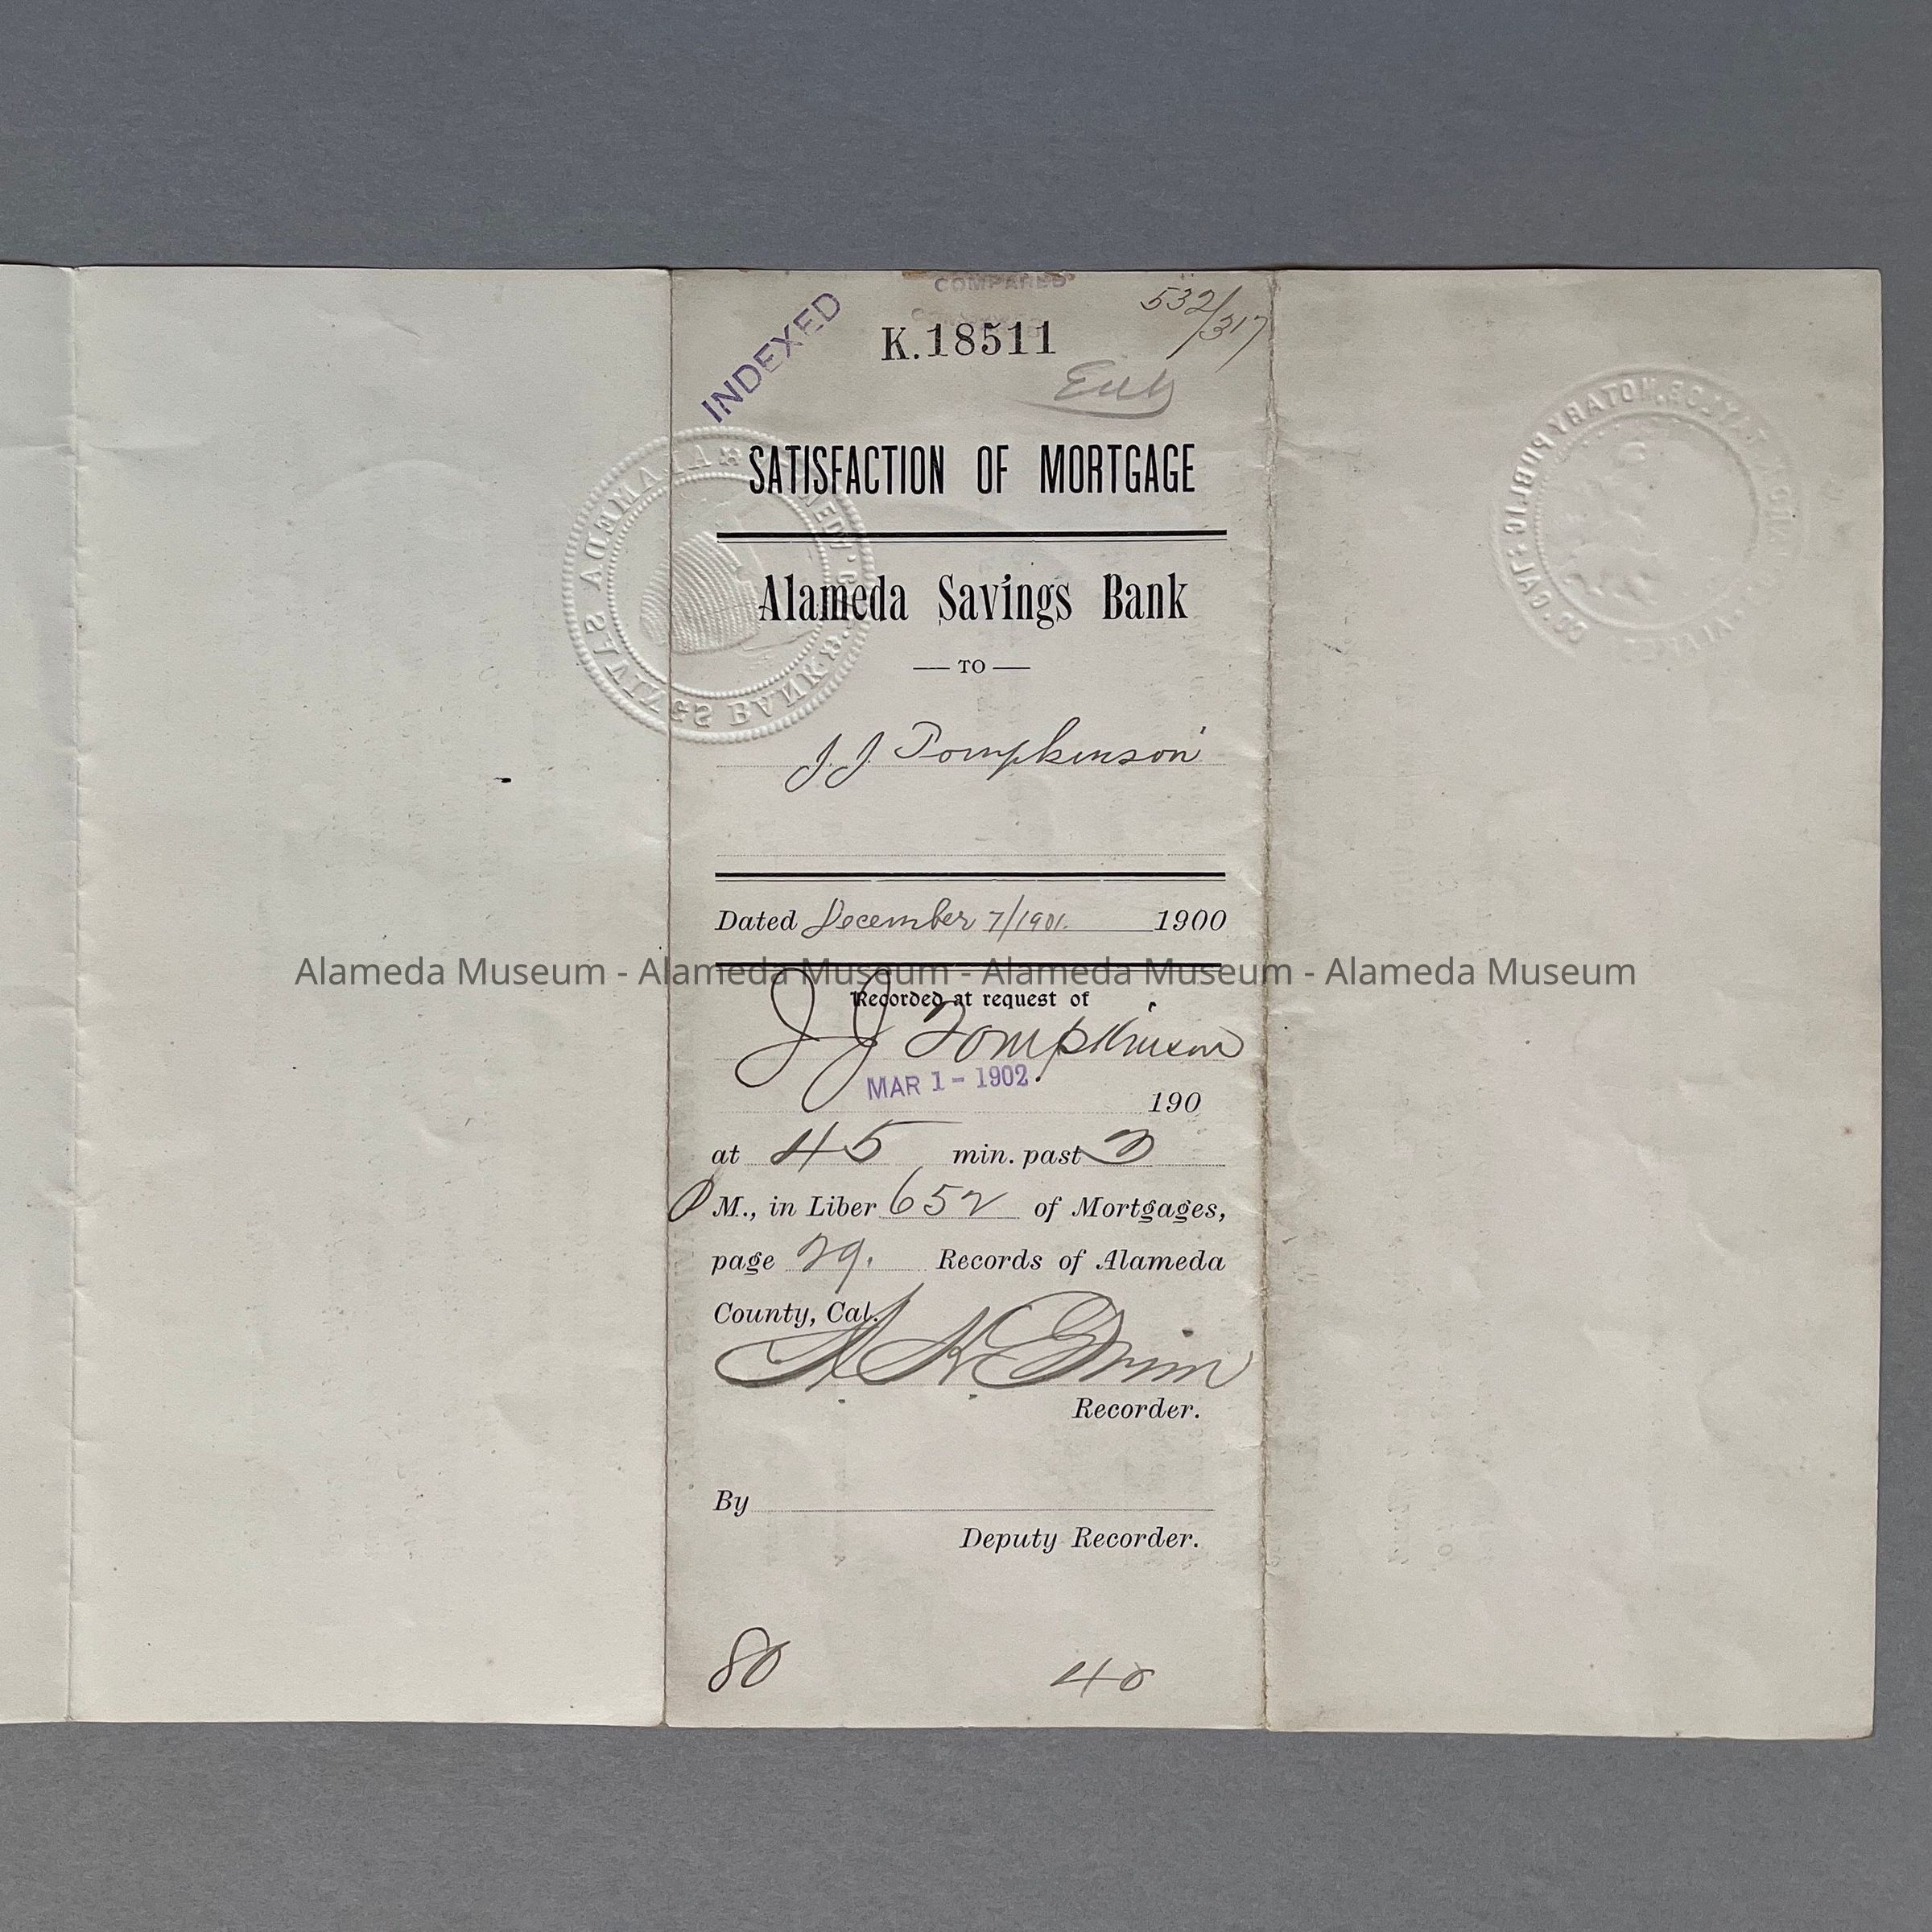 COMPARED
532/317
INDEXED
K.18511
SATISFACTION OF MORTGAGE
Alameda Savings Bank
— TO —
J. J. Tompkinson
Dated December 7/1901. 1900
Alameda Museum - Alameda Museum - Alameda Museum - Alameda Museum
Recorded at request of
J J Tompkinson
MAR 1 - 1902
190
at 45 min. past
P M., in Liber 652 of Mortgages,
page 29. Records of Alameda
County, Cal.
Grim
Recorder.
By
Deputy Recorder.
80 40
ALAMEDA SAVINGS BANK
NOTARY PUBLIC